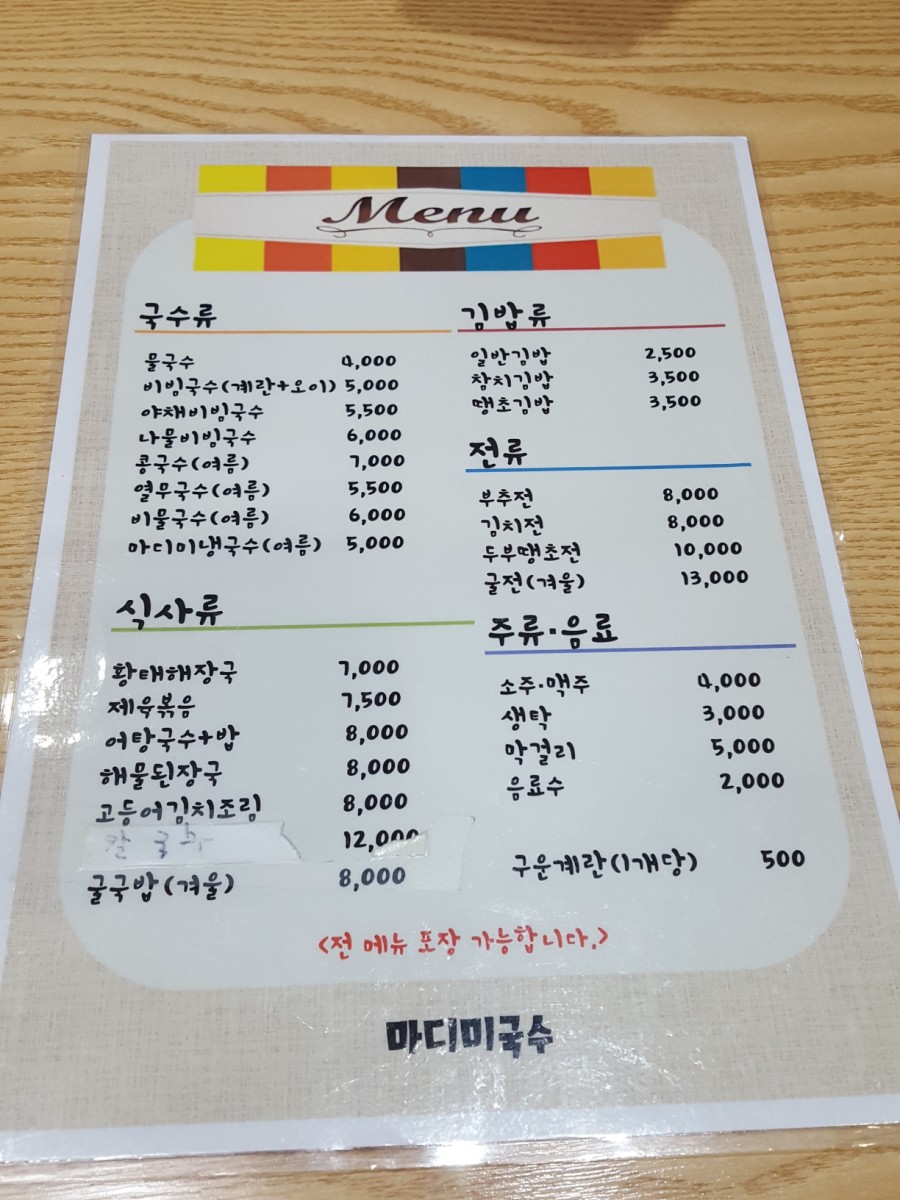 Menu
국수류
물국수 4,000
비빔국수(계란+오이) 5,000
야채비빔국수 5,500
나물비빔국수 6,000
콩국수(여름) 7,000
열무국수(여름) 5,500
비물국수(여름) 6,000
마디미냉국수(여름) 5,000
식사류
황태해장국 7,000
제육볶음 7,500
어탕국수+밥 8,000
해물된장국 8,000
고등어김치조림 8,000
12,000
굴국밥(겨울) 8,000
김밥류
일반김밥 2,500
참치김밥 3,500
땡초김밥 3,500
전류
부추전 8,000
김치전 8,000
두부땡초전 10,000
굴전(겨울) 13,000
주류·음료
소주·맥주 4,000
생탁 3,000
막걸리 5,000
음료수 2,000
구운계란(1개당) 500
<전 메뉴 포장 가능합니다.>
마디미국수